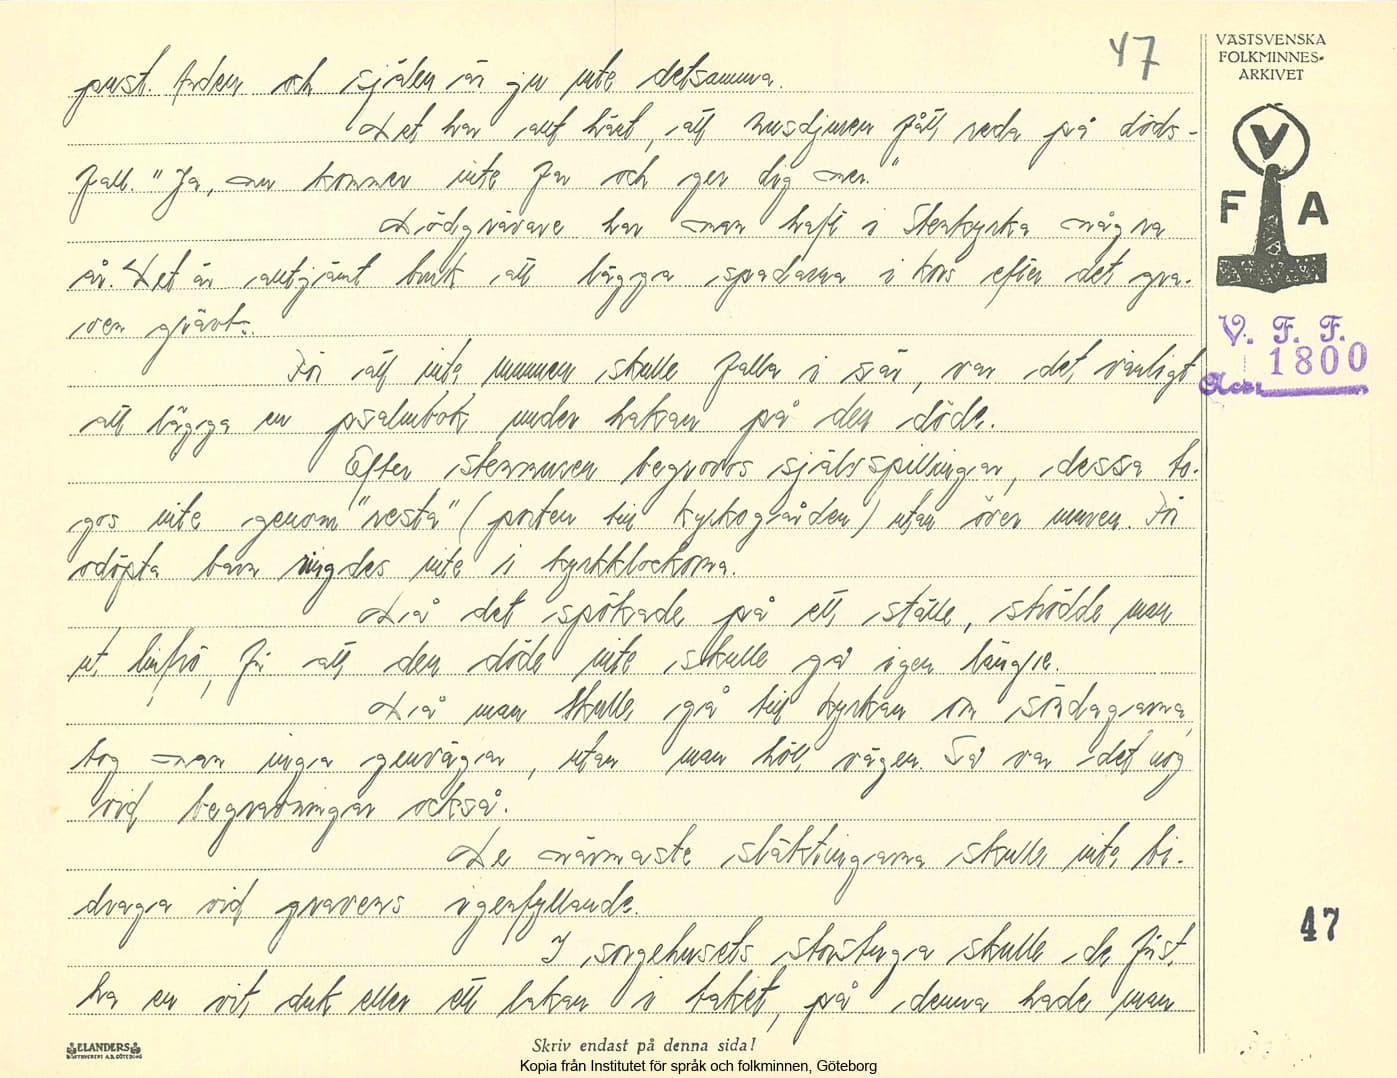 47
VÄSTSVENSKA
FOLKMINNES-
ARKIVET
V
F A
V. F. F.
1800
Acc.
pust. Anden och själen är ju inte detsamma.
Det har allt hänt, att husdjuren fått reda på döds-
fall. "Ja, nu kommer inte far och ger dig mer."
Dödgrävare har man haft i Stenkyrka några
år. Det är alltjämt bruk att lägga spadarna i kors efter det gra-
ven grävts.
För att inte munnen skulle falla i sär, var det vanligt
att lägga en psalmbok under hakan på den döde.
Efter stenmuren begrovos självspillingar, dessa to-
gos inte genom "resta" (porten till kyrkogården) utan över muren. För
odöpta barn ringdes inte i kyrkklockorna.
Då det spökade på ett ställe, strödde man
ut linfrö, för att den döde inte skulle gå igen längre.
Då man skulle gå till kyrkan om söndagarna,
tog man inga genvägar, utan man höll vägen. Så var det nog
vid begravningar också.
De närmaste släktingarna skulle inte bi-
draga vid gravens igenfyllande.
I sorgehusets storstuga skulle de först
ha en vit duk eller ett lakan i taket, på denna hade man
47
ELANDERS
Skriv endast på denna sida!
Kopia från Institutet för språk och folkminnen, Göteborg